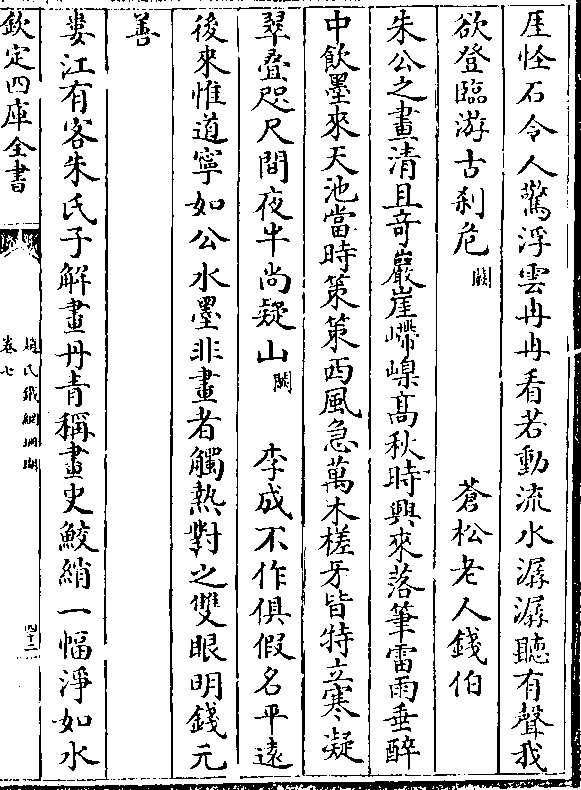 厓怪石令人驚浮雲冉冉看若動流水潺潺聽有聲我
欲登臨游古刹危闕　蒼松老人錢伯
朱公之畫清且竒巖崖嵽嵲髙秋時興來落筆雷雨垂醉
中飲墨來天池當時策策西風急萬木槎牙皆特立寒凝
翠叠咫尺間夜半尚疑山闕　李成不作俱假名平逺
後來惟道寧如公水墨非畫者觸熱對之雙眼明錢元
善
婁江有客朱氏子解畫丹青稱畫史鮫綃一幅淨如水
欽定四庫全書
趙氏鐵網珊瑚
卷七
四十二